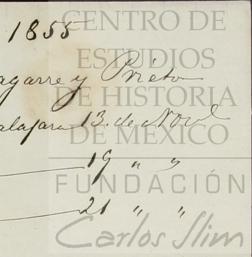 1855
CENTRO DE
ESTUDIOS
agarre y Prieto
DE HISTORIA
alajara 13 de Novl
DE MÉXICO
19 " "
FUNDACIÓN
21 " "
Carlos Slim